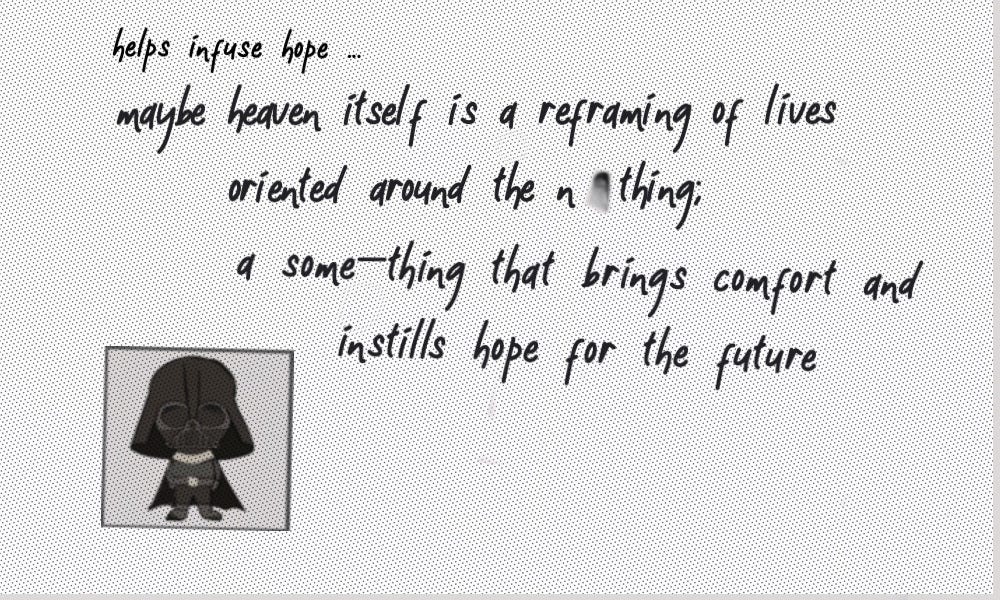 helps infuse hope ...
maybe heaven itself is a reframing of lives
oriented around the n thing;
a some-thing that brings comfort and
instills hope for the future